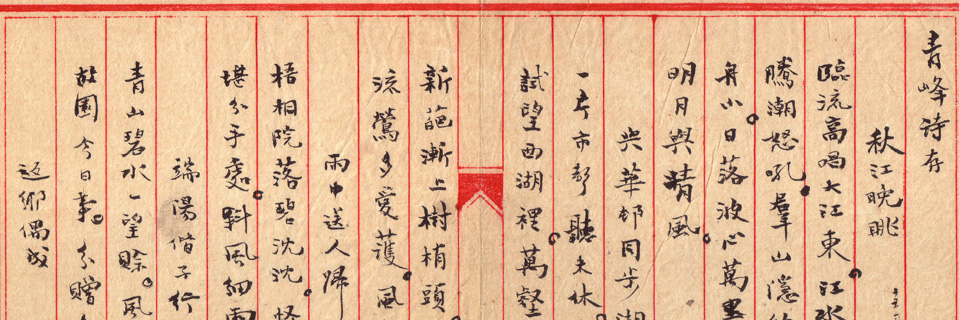 青峰诗存
秋江晚眺
臨流高唱大江東。江水
騰潮怒吼。羣山隱
舟小日落波心萬里
明月與晴風。
與華邨同步湖
一片市聲聽未休。
試望西湖裡萬壑
新葩漸上樹梢頭
流鶯多愛護。風
雨中送人歸
梧桐院落碧沈沈。怪
堪分手處。斜風細雨
端陽偕子行
青山碧水一望賒。風
故園今日事。分贈
返鄉偶成